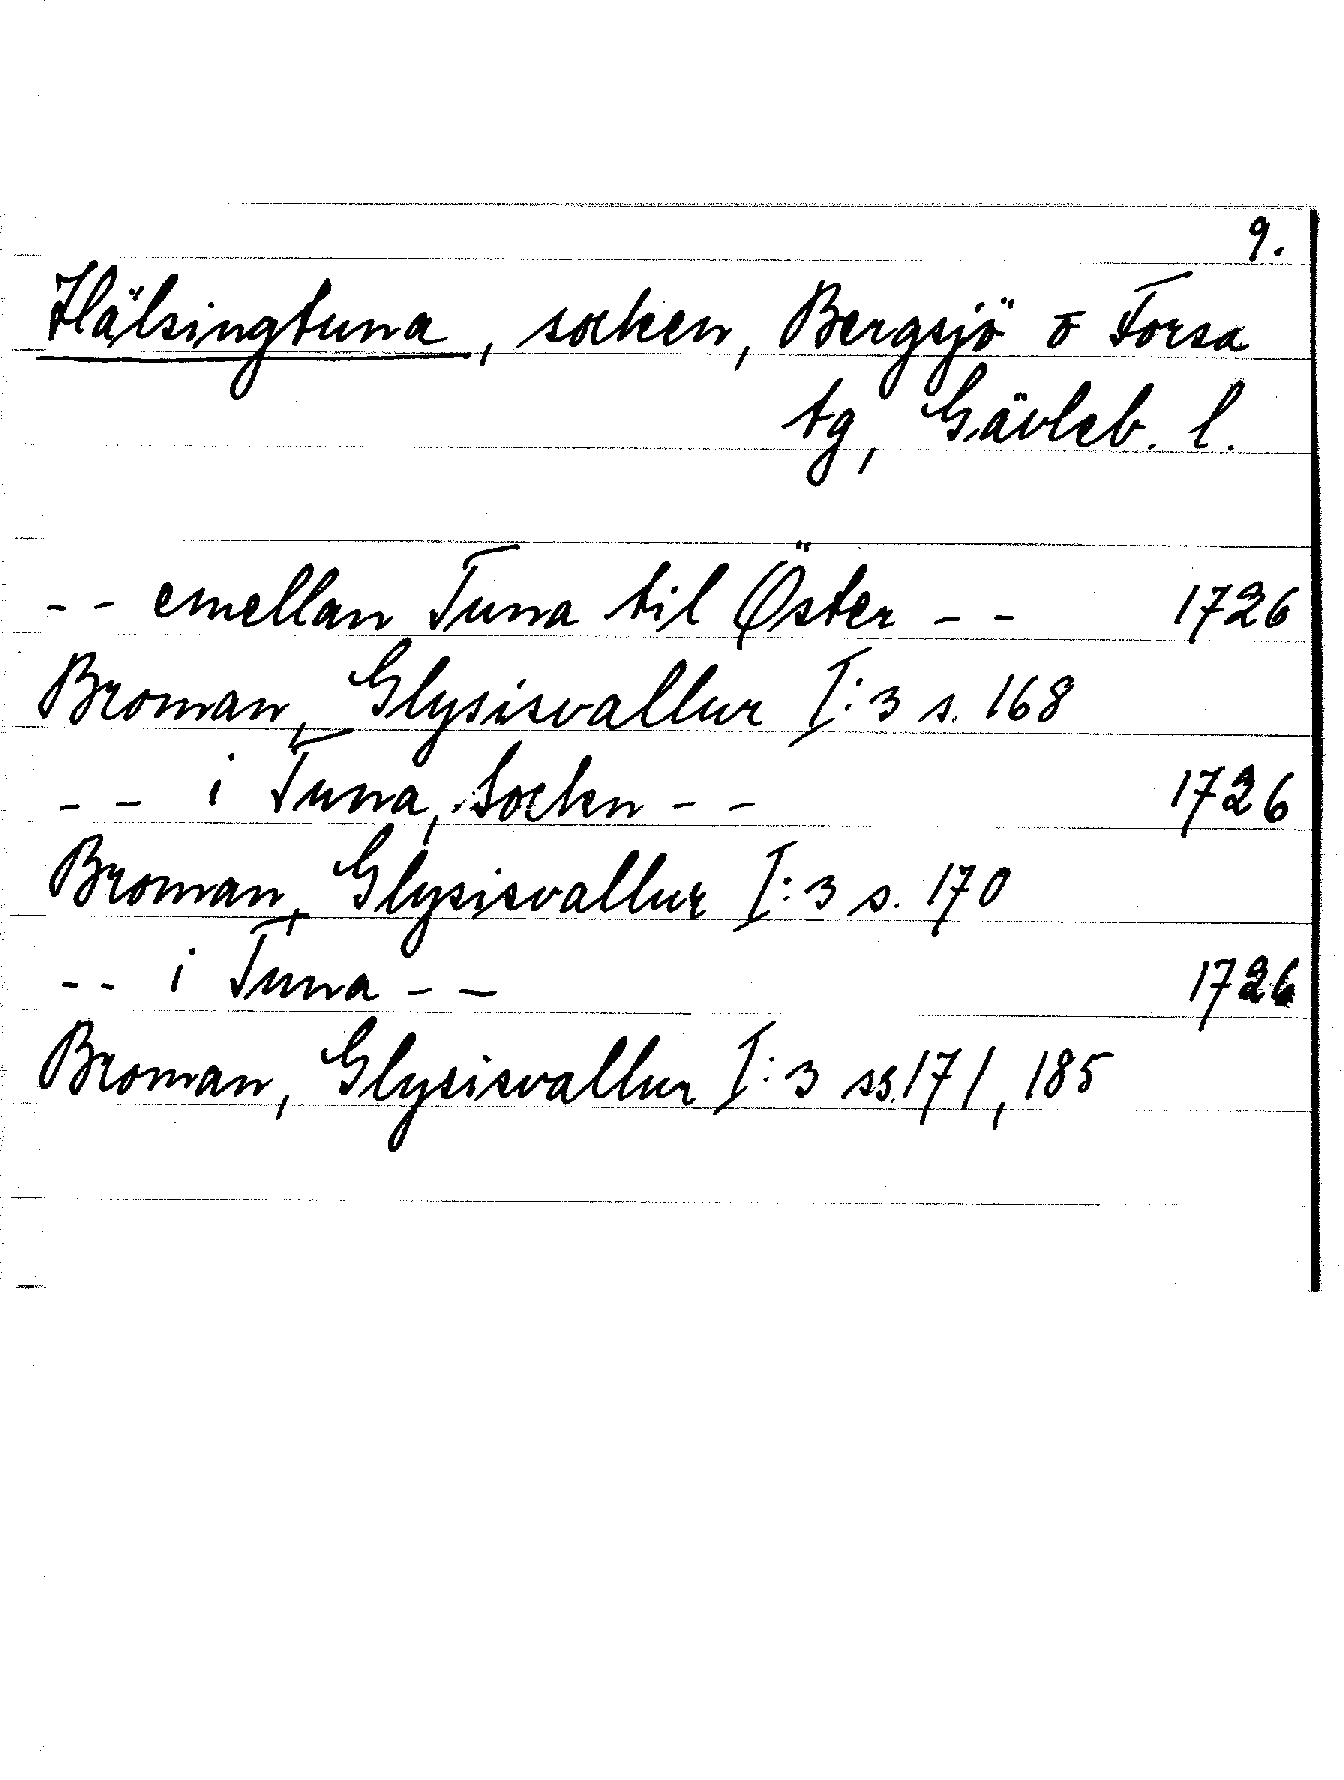 9.
Hälsingtuna, socken, Bergsjö o Forsa
tg, Gävleb. l.
-- emellan Tuna til Öster -- 1726
Broman, Glysisvallur I:3 s. 168
-- i Tuna, Sockn -- 1726
Broman, Glysisvallur I:3 s. 170
-- i Tuna -- 1726
Broman, Glysisvallur I:3 ss. 171, 185